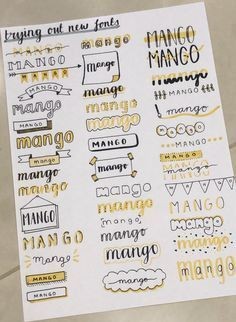 trying out new fonts
mango
MANGO
MANGO
MANGO
mango
MANGO
mango
MANGO
mango
mango
MANGO
MANGO
mango
MANGO
MANGO
mango
mango
mango
mango
mango
MANGO
mango
MANGO
mango
mango
mango
mango
mango
MANGO
MANGO
mango
mango
mango
MANGO
MANGO
MANGO
mango
MANGO
MANGO
MANGO
mango
mango